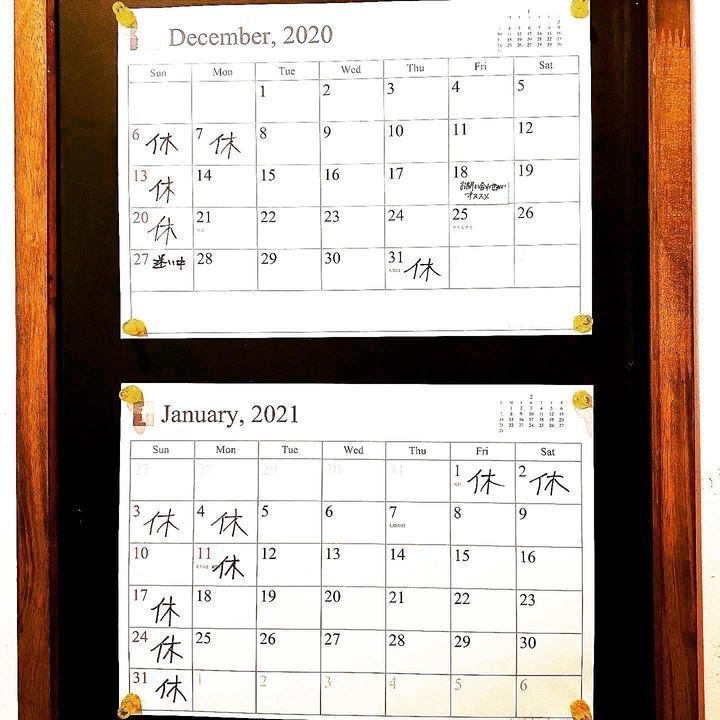 December, 2020
Sun Mon Tue Wed Thu Fri Sat
1 2 3 4 5
6 休 7 休 8 9 10 11 12
13 休 14 15 16 17 18 19
オススメ
20 休 21 22 23 24 25 26
クリスマス
27 迷い中 28 29 30 31 休
January, 2021
Sun Mon Tue Wed Thu Fri Sat
27 28 29 30 31 1 休 2 休
3 休 4 休 5 6 7 8 9
10 11 休 12 13 14 15 16
17 休 18 19 20 21 22 23
24 休 25 26 27 28 29 30
31 休 1 2 3 4 5 6